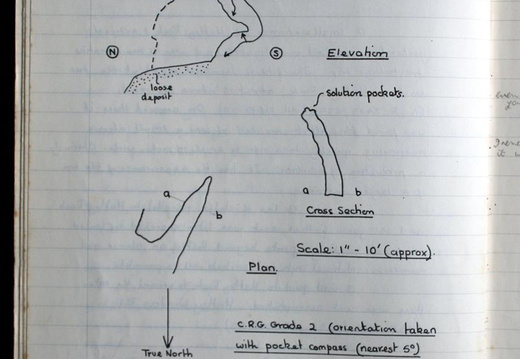 N
S
Elevation
loose
deposit
solution pockets.
a
b
Cross Section
a
b
Scale: 1" - 10' (approx).
Plan.
True North
C.R.G. Grade 2 (orientation taken
with pocket compass (nearest 5°)